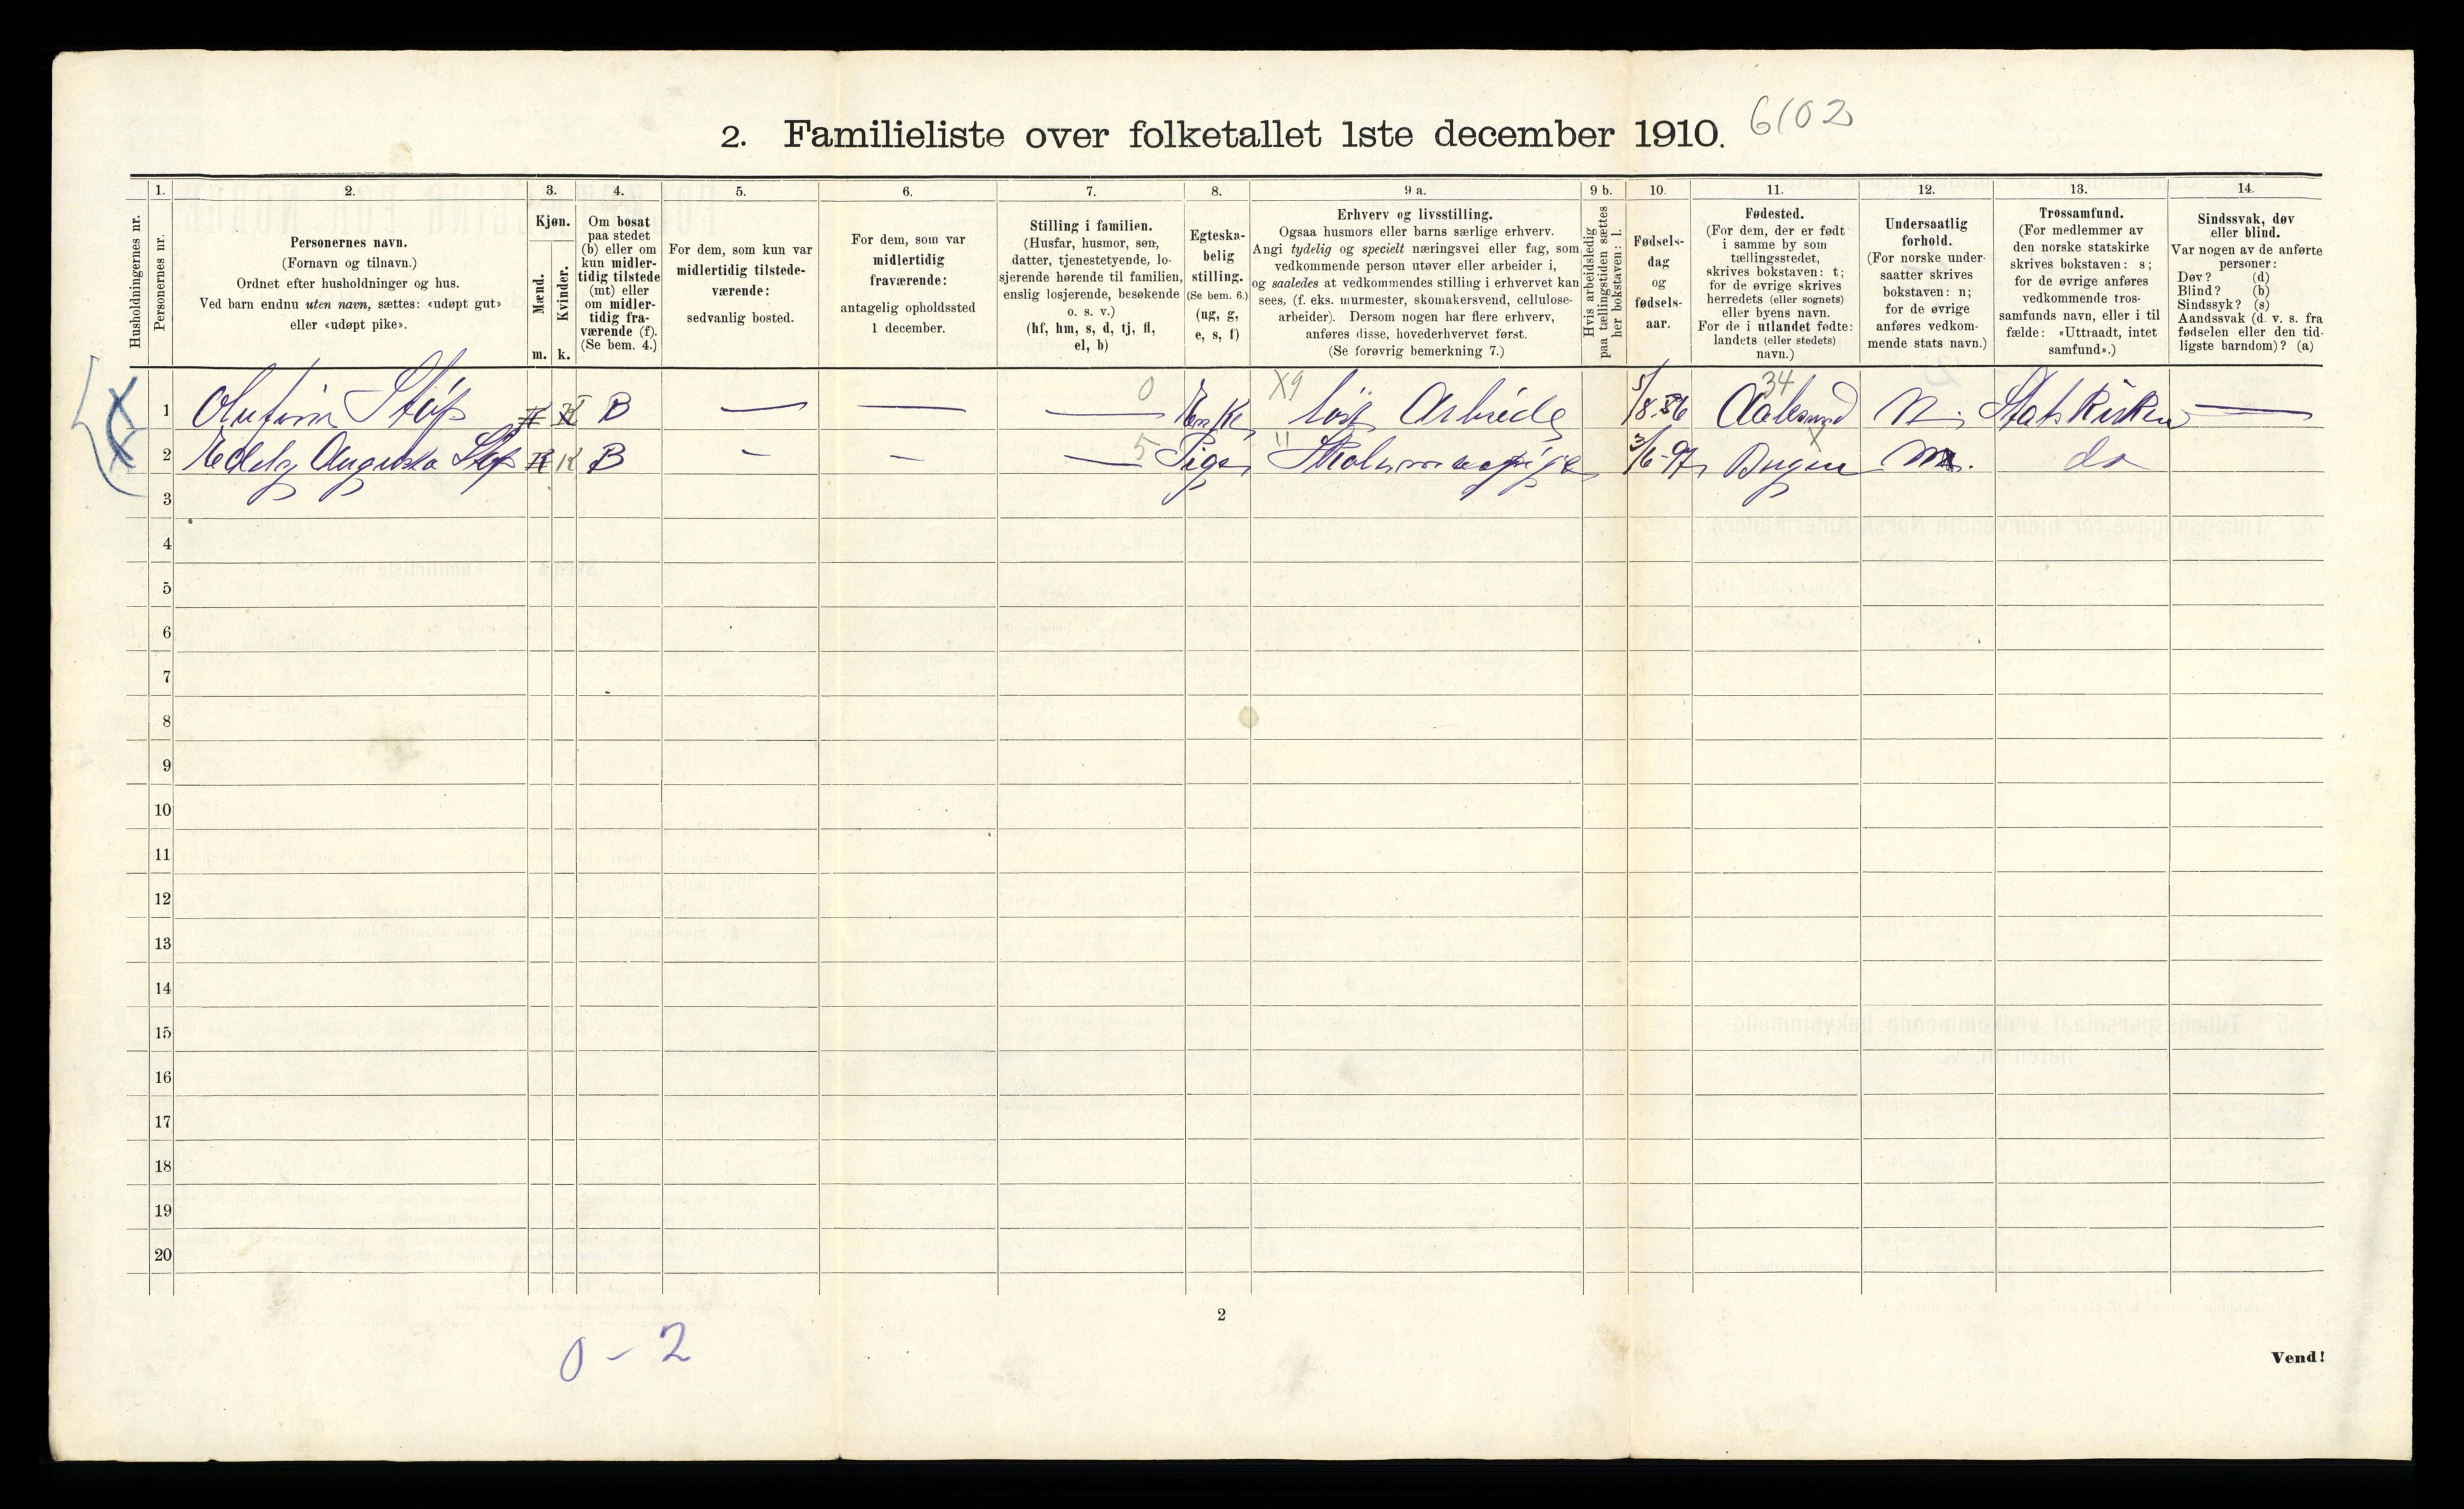 2. Familieliste over folketallet 1ste december 1910. 6102
1. 2. 3. 4. 5. 6. 7. 8. 9 a. 9 b. 10. 11. 12. 13. 14.
Husholdningernes nr.
Personernes nr.
Personernes navn.
(Fornavn og tilnavn.)
Ordnet efter husholdninger og hus.
Ved barn endnu uten navn, sættes: «udøpt gut»
eller «udøpt pike».
Kjøn.
Mænd.
Kvinder.
m. k.
Om bosat
paa stedet
(b) eller om
kun midler-
tidig tilstede
(mt) eller
om midler-
tidig fra-
værende (f).
(Se bem. 4.)
For dem, som kun var
midlertidig tilstede-
værende:
sedvanlig bosted.
For dem, som var
midlertidig
fraværende:
antagelig opholdssted
1 december.
Stilling i familien.
(Husfar, husmor, søn,
datter, tjenestetyende, lo-
sjerende hørende til familien,
enslig losjerende, besøkende
o. s. v.)
(hf, hm, s, d, tj, fl,
el, b)
Egteska-
belig
stilling.
(Se bem. 6.)
(ug, g,
e, s, f)
Erhverv og livsstilling.
Ogsaa husmors eller barns særlige erhverv.
Angi tydelig og specielt næringsvei eller fag, som
vedkommende person utøver eller arbeider i,
og saaledes at vedkommendes stilling i erhvervet kan
sees, (f. eks. murmester, skomakersvend, cellulose-
arbeider). Dersom nogen har flere erhverv,
anføres disse, hovederhvervet først.
(Se forøvrig bemerkning 7.)
Hvis arbeidsledig
paa tællingstiden sættes
her bokstaven: l.
Fødsels-
dag
og
fødsels-
aar.
Fødested.
(For dem, der er født
i samme by som
tællingsstedet,
skrives bokstaven: t;
for de øvrige skrives
herredets (eller sognets)
eller byens navn.
For de i utlandet fødte:
landets (eller stedets)
navn.)
Undersaatlig
forhold.
(For norske under-
saatter skrives
bokstaven: n;
for de øvrige
anføres vedkom-
mende stats navn.)
Trossamfund.
(For medlemmer av
den norske statskirke
skrives bokstaven: s;
for de øvrige anføres
vedkommende tros-
samfunds navn, eller i til
fælde: «Uttraadt, intet
samfund».)
Sindssvak, døv
eller blind.
Var nogen av de anførte
personer:
Døv? (d)
Blind? (b)
Sindssyk? (s)
Aandssvak (d. v. s. fra
fødselen eller den tid-
ligste barndom)? (a)
X9 34
1 Støp K B — — — 0 løst Arbeide 5/8-56 Aalesund N. Statskirken —
2 Augusta Støp K B - - — 5 Pige 3/6-97 M. do
3
4
5
6
7
8
9
10
11
12
13
14
15
16
17
18
19
20
2
0 - 2
Vend!